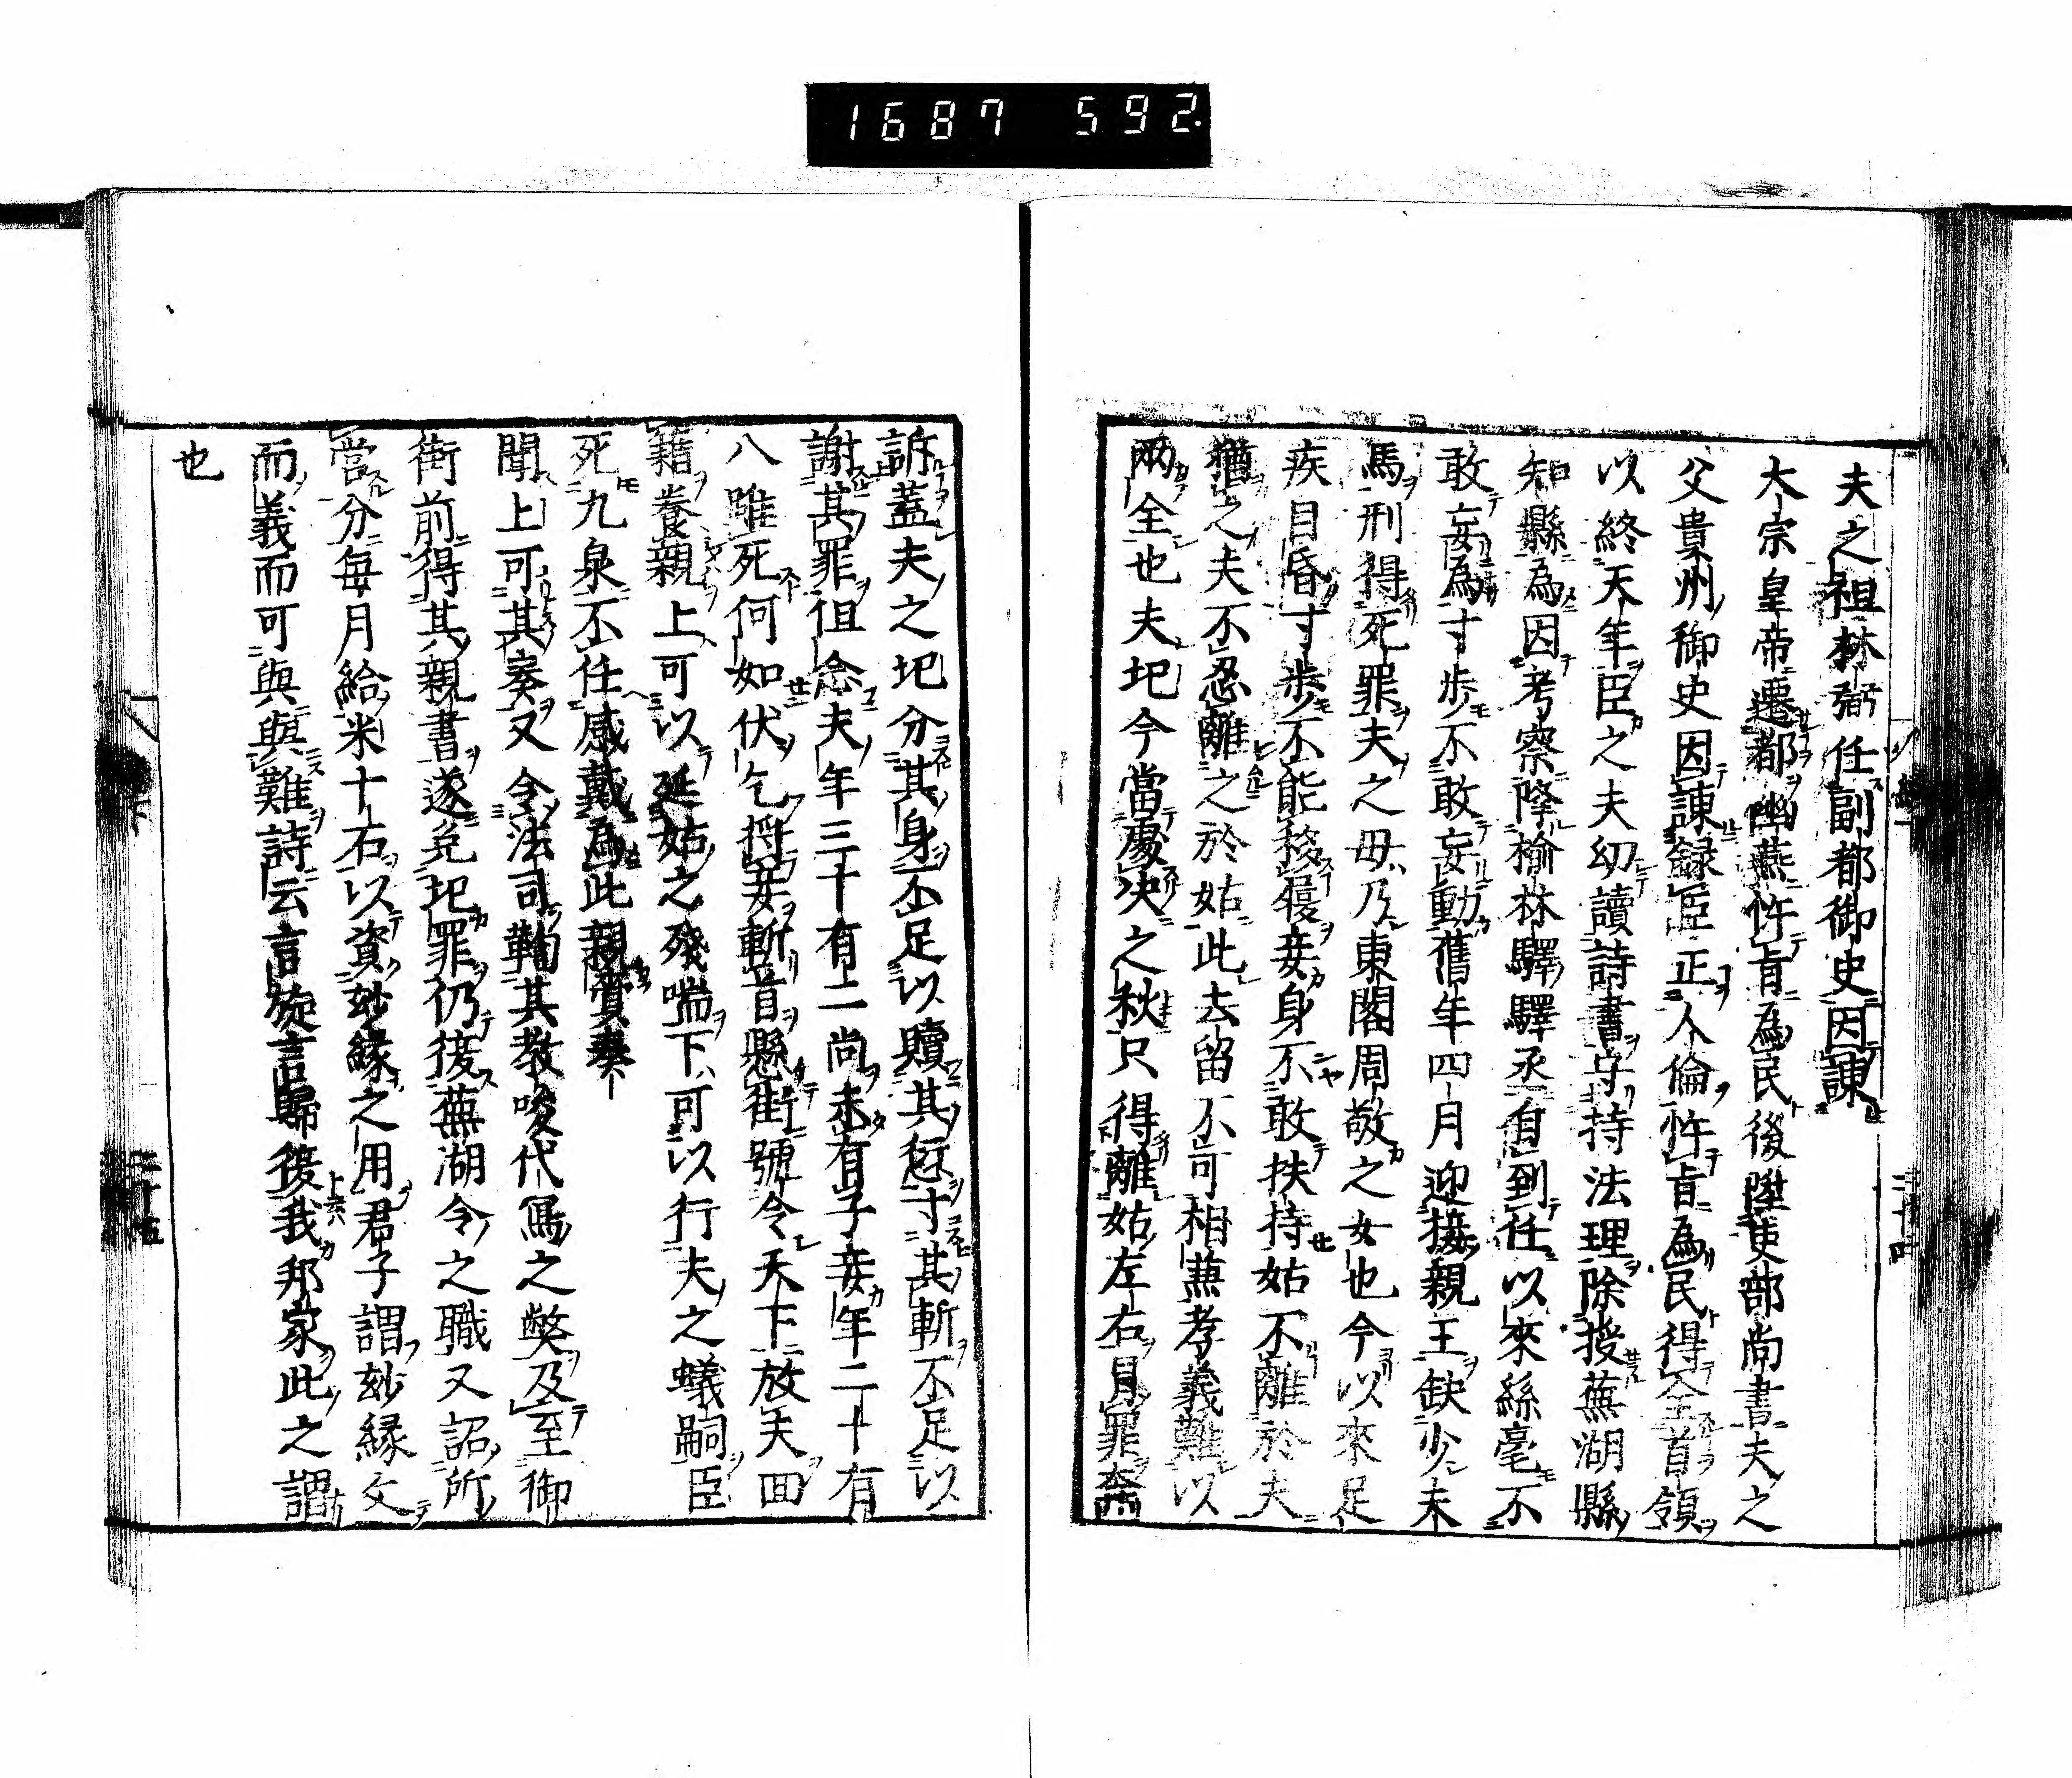 1687 592.
夫之祖林弼任副都御史因諫
大宗皇帝遷都幽燕忤旨為民後陞吏部尚書夫之
父貴州御史因諫録臣正人倫忤旨為民得全首領
以終天年臣之夫幼讀詩書守持法理除授蕪湖縣
知縣為因考察降榆林驛驛丞自到任以來絲毫不
敢妄為寸歩不敢妄動舊年四月迎接親王缺少夫
馬刑得死罪夫之毋乃東閣周敬之女也今以來足
疾目昏寸歩不能移履妾身不敢扶持姑不離於夫
猶之夫不忍離之於姑此去留不可相蕪孝義難以
兩全也夫圯今當處决之秋只得離姑左右具罪奔
訴蓋夫之圯分其身不足以贖其愆寸其斬不足以
謝其罪徂念夫年三十有二尚未有子妾年二十有
八雖死何如伏乞捋妾斬首懸街號令天下放夫囬
籍養親上可以延姑之殘喘下可以行夫之蟻嗣臣
死九泉不任感戴為此親賫奏
聞上可其奏又令法司鞠其教唆代寫之獘及至御
街前得其親書遂免圯罪仍復蕪湖令之職又詔所
當分每月給米十石以資玅緣之用君子謂玅緣文
而義而可與與難詩云言旋言歸復我邦家此之謂
也
二十四
二十五